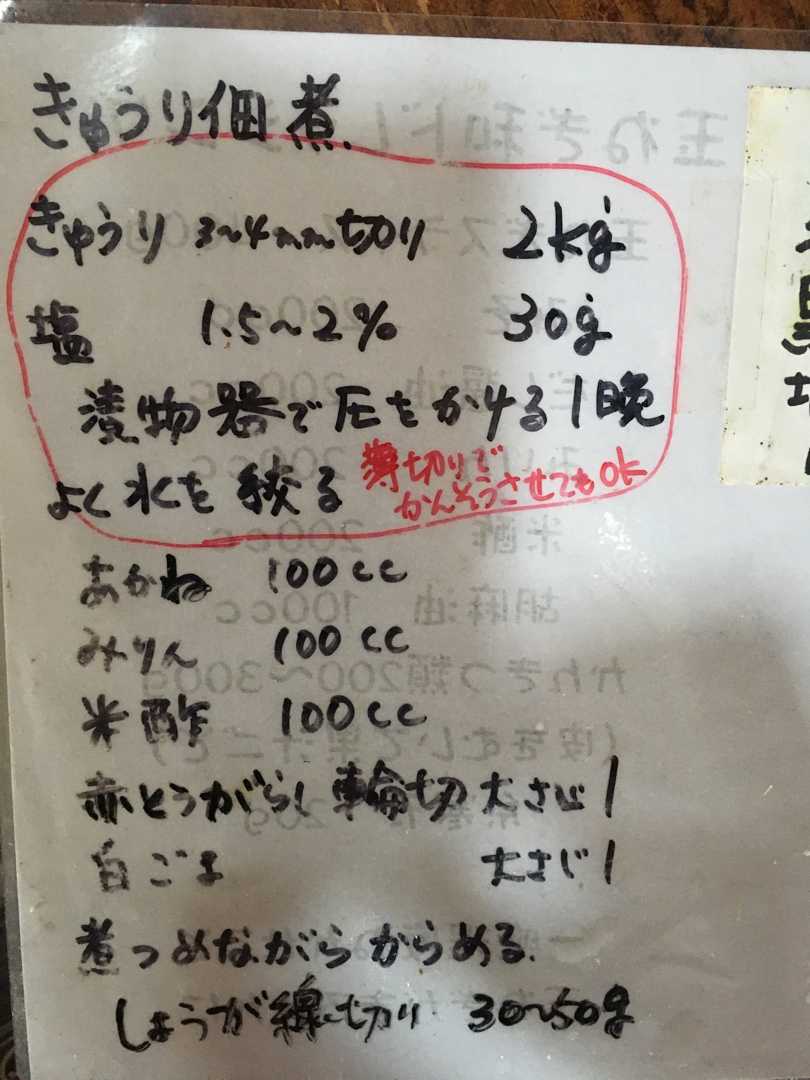 きゅうり佃煮
きゅうり 3〜4mm切り 2kg
塩 1.5〜2% 30g
漬物器で圧をかける1晩
よく水を絞る
薄切りで
かんそうさせてもOK
あかね 100cc
みりん 100cc
米酢 100cc
赤とうがらし輪切 大さじ1
白ごま 大さじ1
煮つめながらからめる.
しょうが線切り 30〜50g